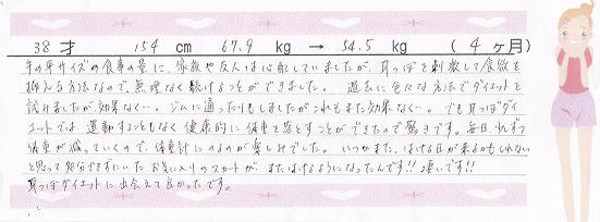 38 才 154 cm 67.9 kg → 54.5 kg (4ヶ月)
手の平サイズの食事の量に、家族や友人は心配していましたが、耳つぼを刺激して食欲を
抑える方法なので、無理なく続けることができました。過去に色々な方法でダイエットを
試みましたが、効果なく…。ジムに通ったりもしましたがこれもまた効果なく…。でも耳つぼダイ
エットでは、運動することもなく健康的に体重を落とすことができたので驚きです。毎日、少しずつ
体重が減っていくので、体重計にのるのが楽しみでした。いつかまた、はける日が来るかもしれない
と思って処分できずにいたお気に入りのスカートが、またはけるようになったんです!!凄いです!!
耳つぼダイエットに出会えて良かったです。